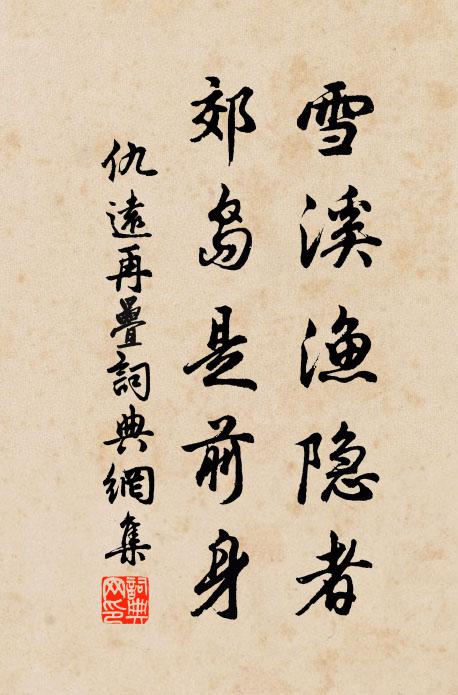 雪溪渔隐者
郊岛是前身
仇远再叠词典網集
詞典网印